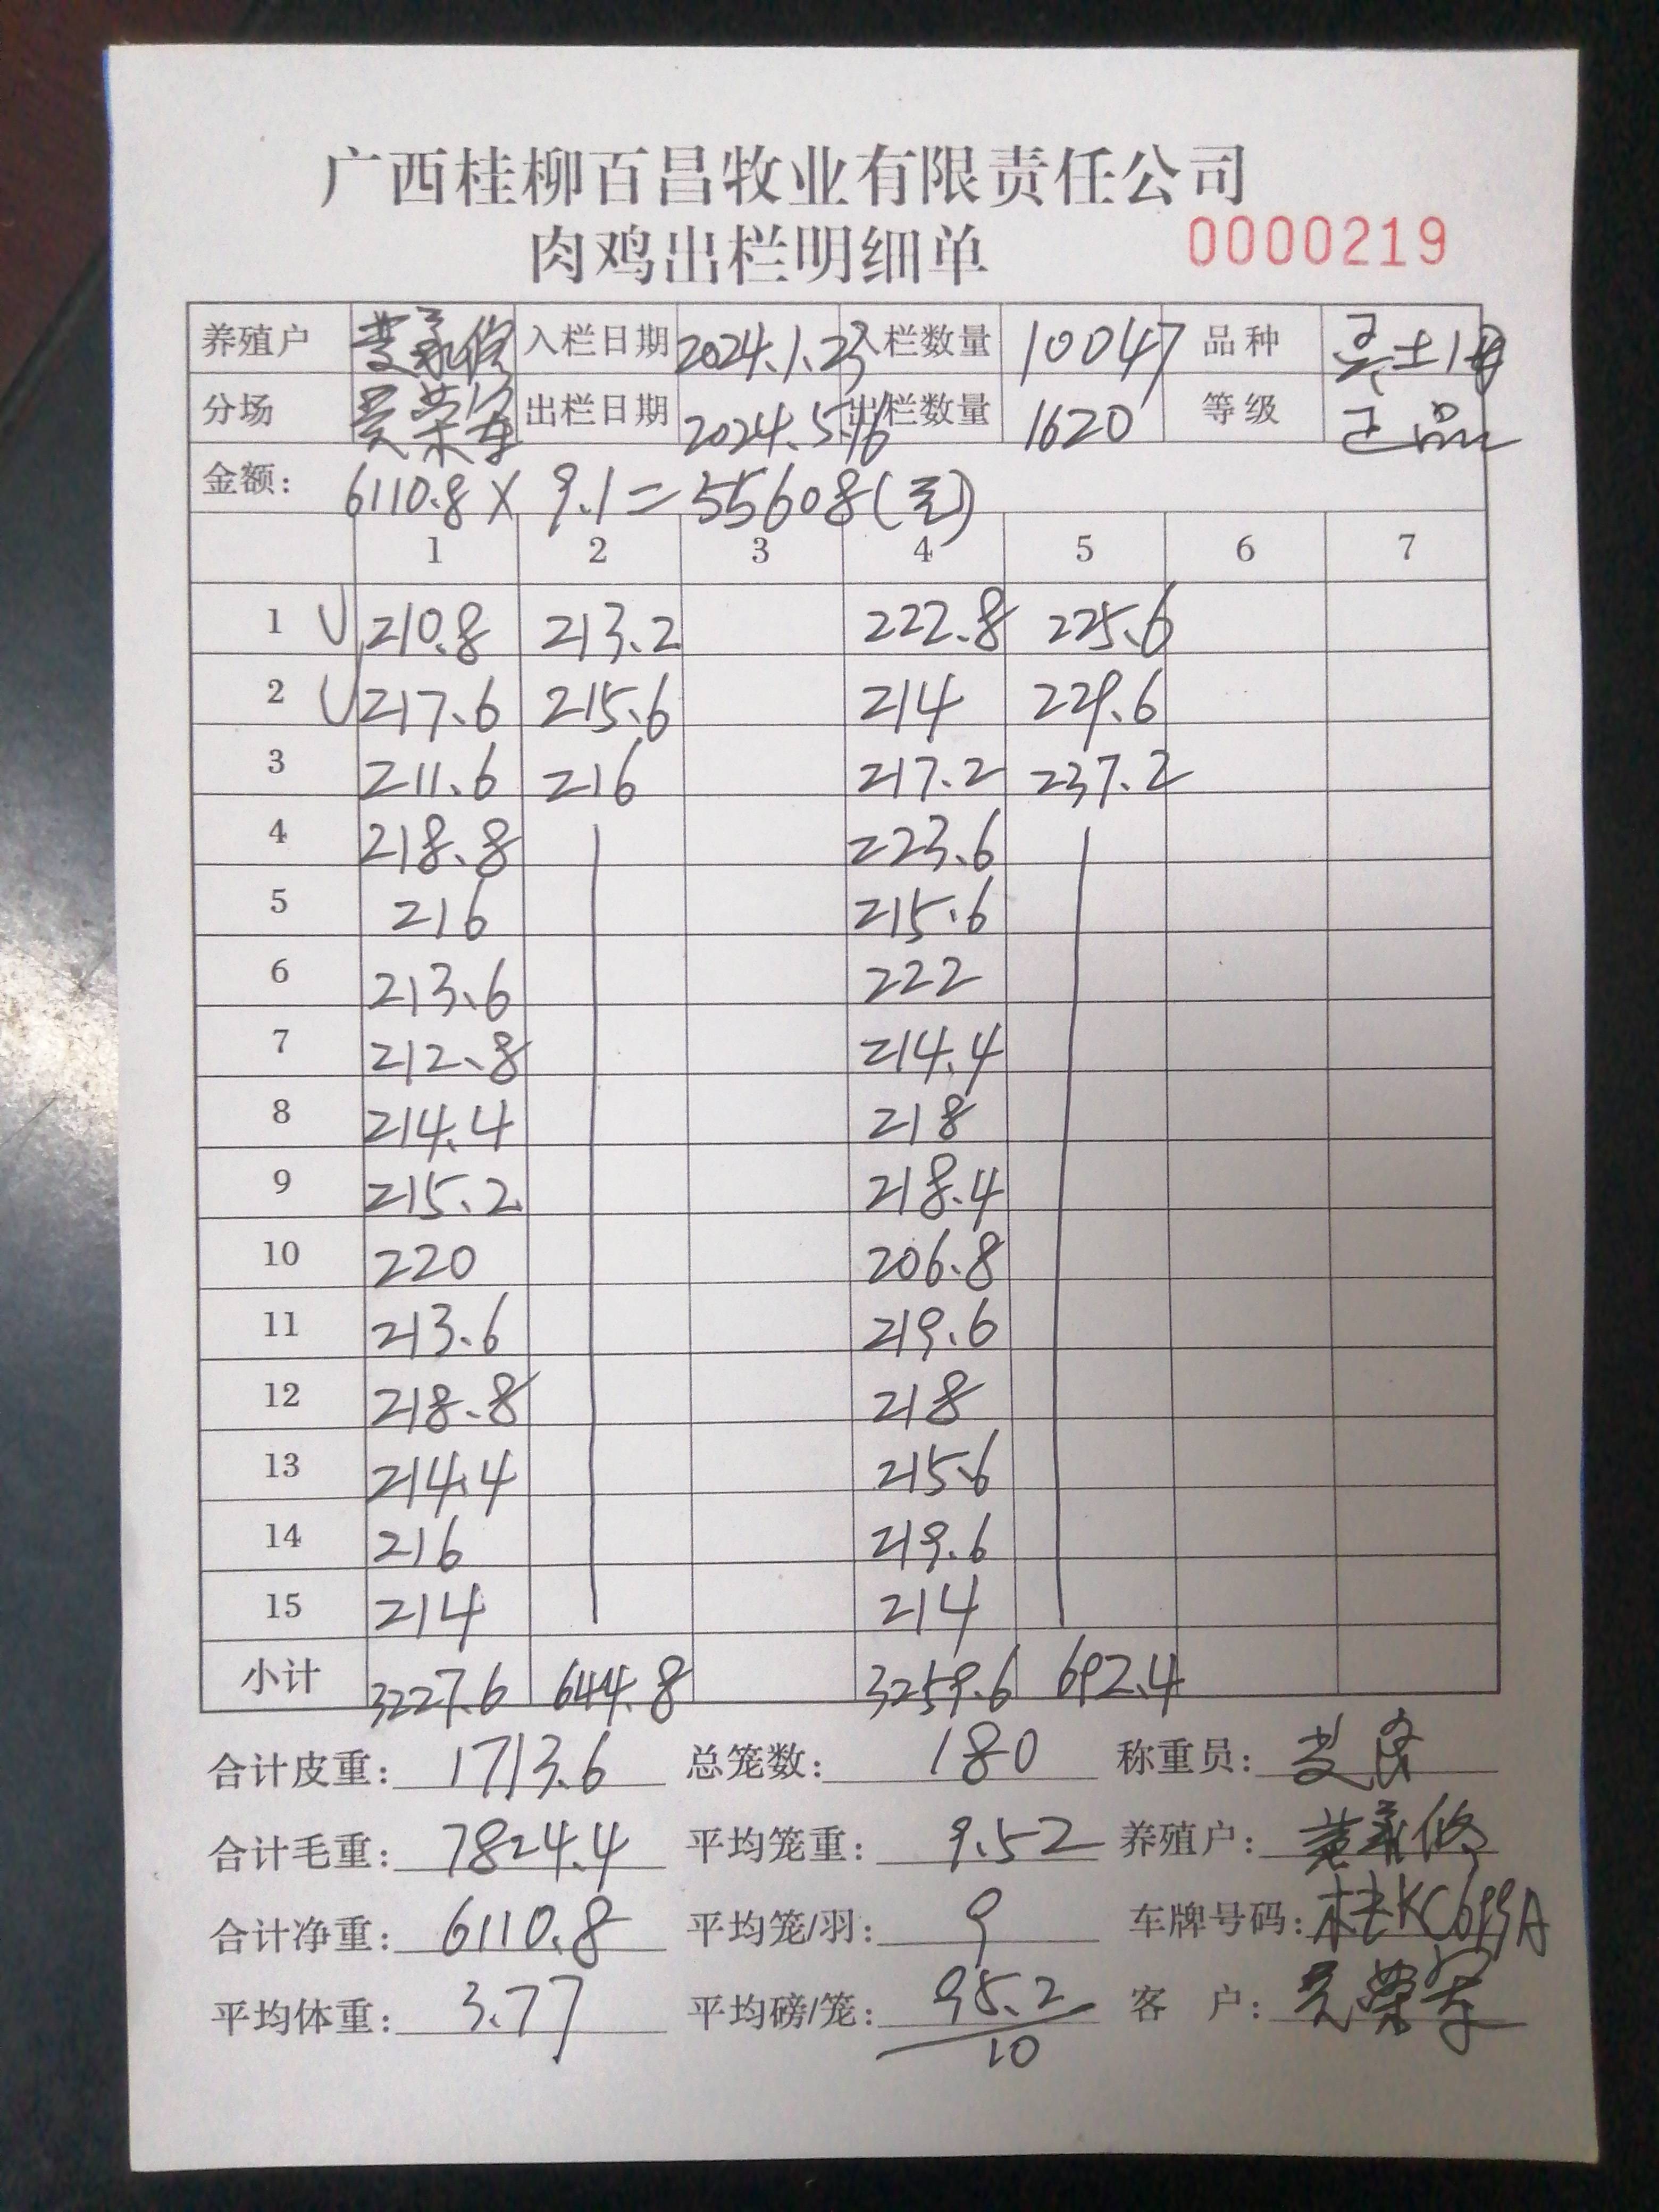 广西桂柳百昌牧业有限责任公司
肉鸡出栏明细单 0000219
养殖户 入栏日期 2024.1.23 入栏数量 10047 品种
分场 吴荣军 出栏日期 2024.5.16 出栏数量 1620 等级 正品
金额: 6110.8 X 9.1 = 55608(元)
1 2 3 4 5 6 7
1 210.8 213.2 222.8 225.6
2 217.6 215.6 214 229.6
3 211.6 216 217.2 237.2
4 218.8 223.6
5 216 215.6
6 213.6 222
7 212.8 214.4
8 214.4 218
9 215.2 218.4
10 220 206.8
11 213.6 219.6
12 218.8 218
13 214.4 215.6
14 216 219.6
15 214 214
小计 3227.6 644.8 3259.6 692.4
合计皮重: 1713.6 总笼数: 180 称重员:
合计毛重: 7824.4 平均笼重: 9.52 养殖户:
合计净重: 6110.8 平均笼/羽: 9 车牌号码: 桂KC699A
平均体重: 3.77 平均磅/笼: 95.2/10 客 户: 吴荣军